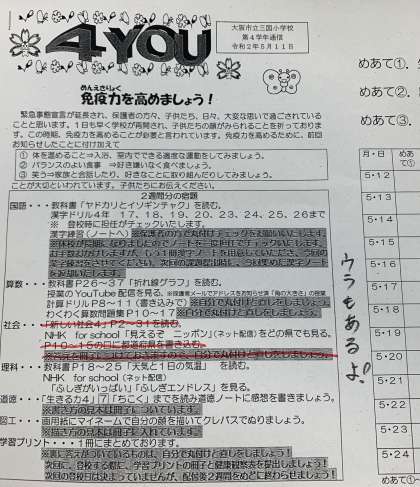 4 YOU
大阪市立三国小学校
第4学年通信
令和2年5月11日
めんえきりょく
免疫力を高めましょう！
緊急事態宣言が延長され、保護者の方々、子供たち、日々、大変な思いで過ごされている
ことと思います。1日も早く学校が再開され、子供たちの顔がみられることを祈っておりま
す。この時期、免疫力を高めることが必要と言われています。免疫力を高めるために、前回
お知らせしたことに付け加えて
① 体を温めること⇒入浴、室内でできる適度な運動をしてみましょう。
② バランスのよい食事 ⇒好き嫌いなく食べましょう。
③ 笑う⇒家族と会話したり、好きなことに取り組んだりしてみましょう。
ことが大切といわれています。子供たちにお伝えください。
2週間分の宿題
国語・・教科書「ヤドカリとイソギンチャク」を読む。
漢字ドリル4年 17、18、19、20、23、24、25、26まで
※ 登校時に担任がチェックいたします。
漢字練習（ノートへ）※保護者の方で丸付けチェックをお願いいたします。
算数・・教科書P26～37「折れ線グラフ」を読む。
授業のYouTube配信を見る。
計算ドリルP8～11（書き込みで）※自分で丸付け・直しをしましょう。
わくわく算数問題集P10～17※自分で丸付け・直しをしましょう。
社会・・「新しい社会4」P2～31を読む。
NHK for school「見えるぞ ニッポン」（ネット配信）をどの県でも見る。
P10～15の口に都道府県を書き込む。
理科・・教科書P18～25「天気と1日の気温」 を読む。
NHK for school（ネット配信）
「ふしぎがいっぱい」「ふしぎエンドレス」を見る。
道徳・・「生きる力4」7「ちこく」までを読み道徳ノートに感想を書きましょう。
※書き方の見本は冊子についています。
図工・・画用紙にマイネームで自分の顔を描いてクレパスでぬりましょう。
※描き方の見本は冊子に入れています。
学習プリント・・・1冊にまとめております。
※裏に答えがついているものは、自分で丸付け・直しをしましょう！
次回、登校する際に、学習プリントの冊子と健康観察表を提出しましょう！
次回の登校日は決まっていませんが、配付後2週間をめどに終わらせましょう！
めあて①.
めあて②.
めあて③.
月・日
めあ
て①
5・12
5・13
5・14
5・15
5・16
5・18
5・19
5・20
5・21
5・22
5・23
5・24
ウラもあるよ!